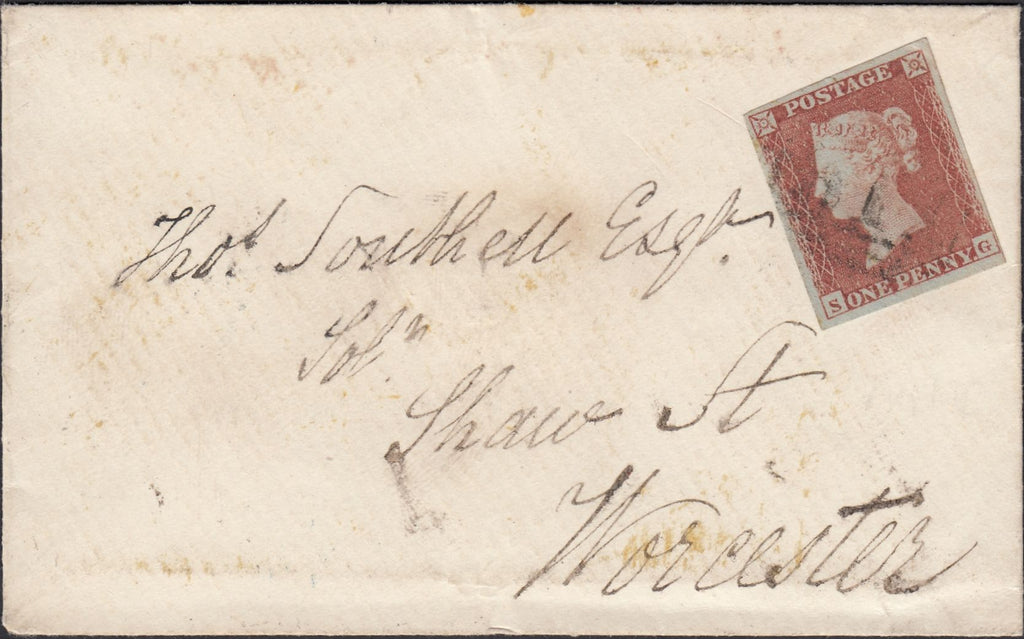 POSTAGE
S ONE PENNY G
Thos. Southell Esqr.
Solr.
Shaw St
Worcester